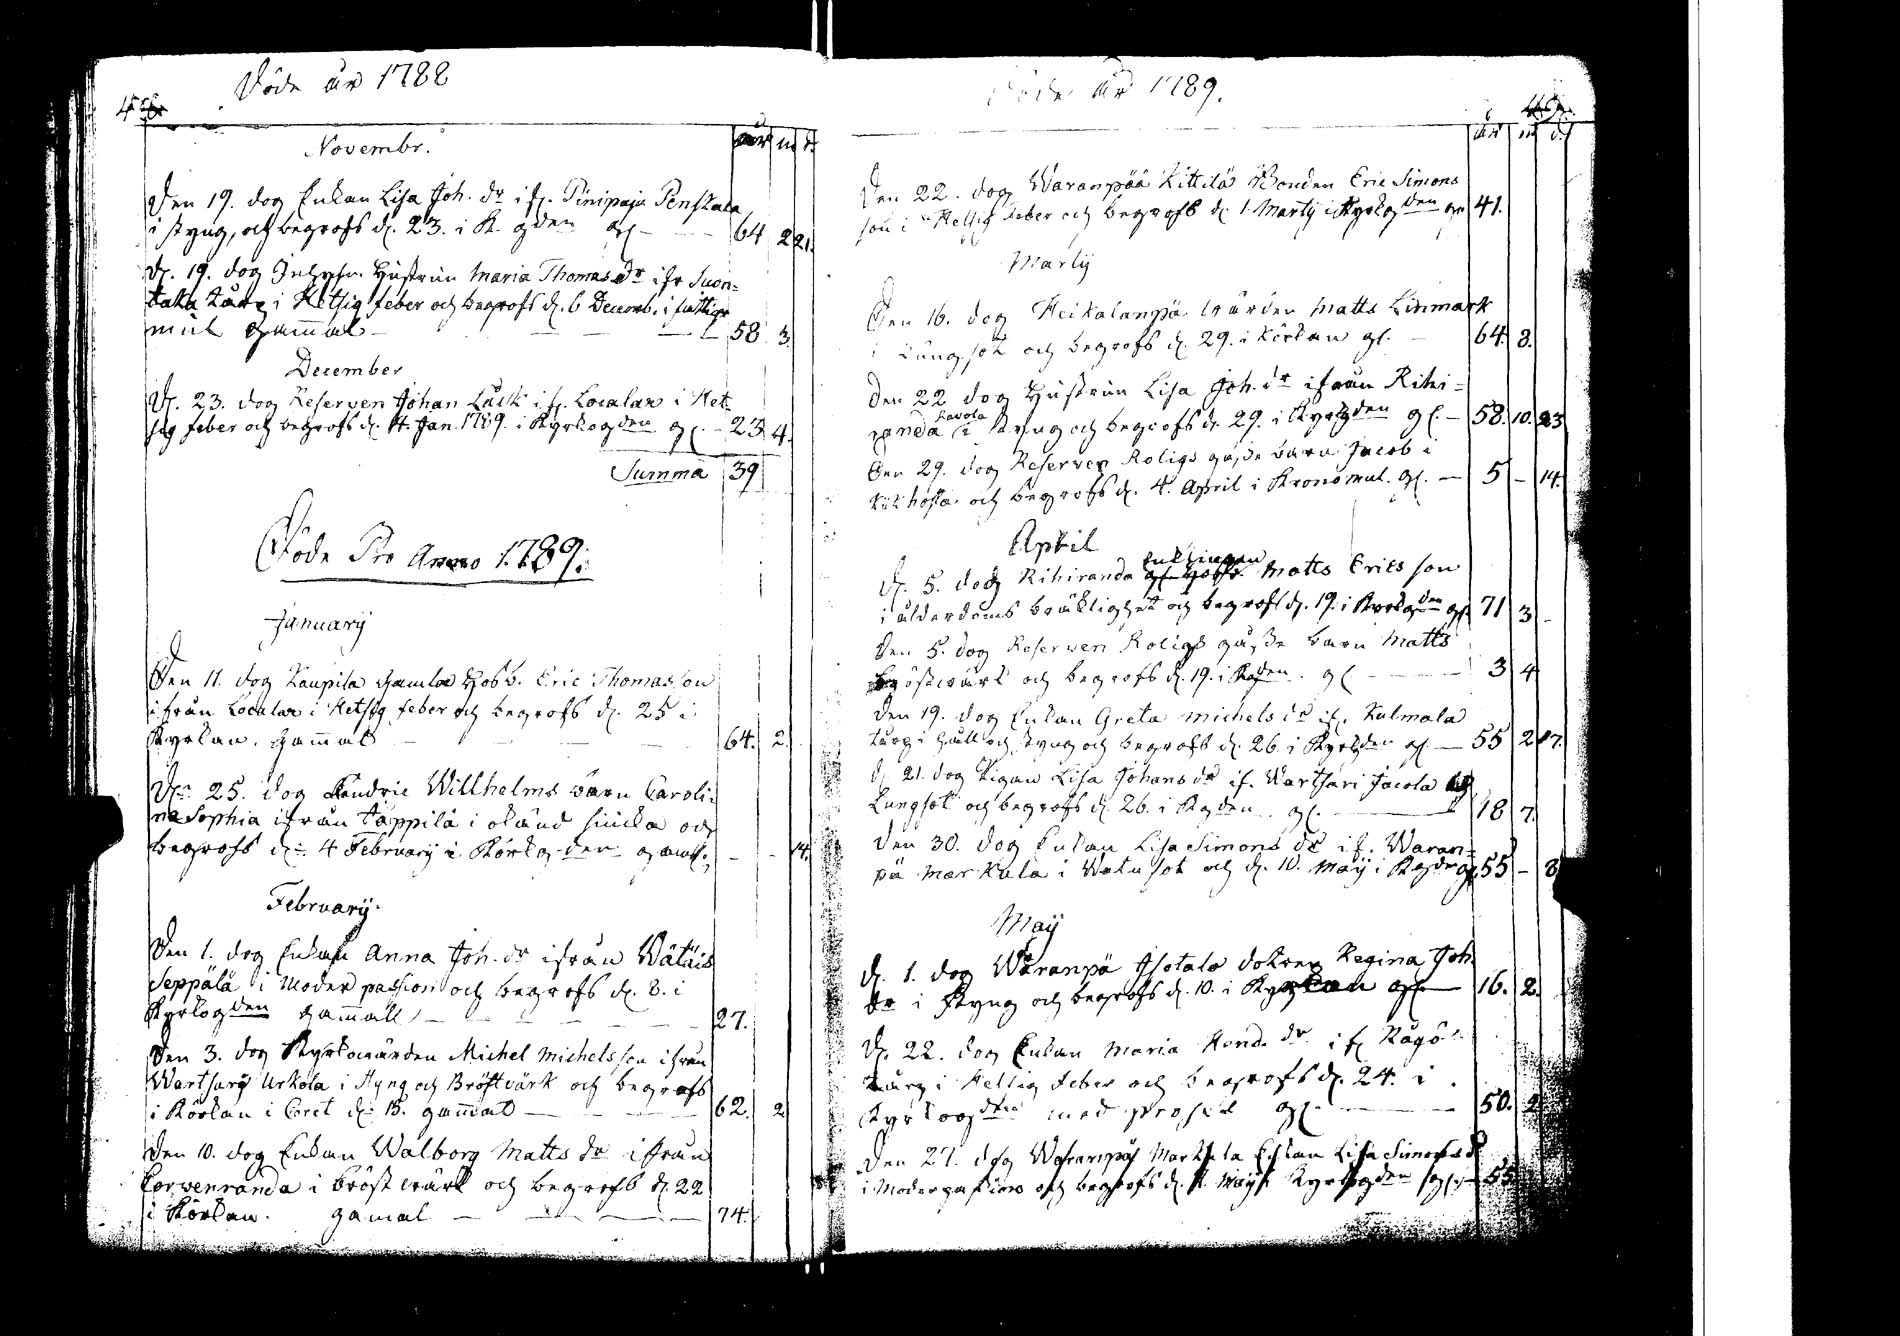 Döde år 1788
år m d.
Novembr.
Den 19. dog Enkan Lisa Joh. dr if. Pinipaju Penskala
i styng, och begrofs d. 23. i K. gden gl. 64 2 21.
d. 19. dog Inhysn. Hustrun Maria Thomas dr ifr Suon=
taka torp i Hetsig feber och begrofs d. 6 Decemb. i fattige
mul gam̄al 58 3.
December
d. 23. dog Reserven Johan Lusk if. Localax i Het=
sig feber och begrofs d. 4 Jan. 1789. i Kyrkogden gl. 23 4.
Summa 39
Döde Pro Anno 1789.
January
Den 11. dog Kaupila Gamla Hosb. Eric Thomasson
ifrån Localax i Hetsig feber och begrofs d. 25 i
Kyrkan. Gam̄al 64. 2.
Den 25. dog Hendric Willhelms barn Caroli=
na Sophia ifrån Tåppilå i okänd siucka och
begrofs d. 4 February i Körkogden gaml. - - 14.
February.
Den 1. dog Enkan Anna Joh. dr ifrån Wätäis
Seppälä i Moder passion och begrofs d. 8. i
Kyrkogden gam̄all 27.
Den 3. dog Kyrkovärden Michel Michelsson ifrån
Wartsary Urkola i Styng och Bröstvärk och begrofs
i Körkan i Coret d. 15. gam̄al 62. 2
Den 10. dog Enkan Walborg Matts dr ifrån
Corvenranda i bröst värk och begrofs d. 22
i Körkan. gamal 74.
Döde år 1789.
år m d.
Den 22. dog Waranpää Kittilä Bonden Eric Simons
son i Hetsig feber och begrofs d. 1. Marty i Kyrkogden gl 41.
Marty
Den 16. dog Heikalanpä wärden Matts Linmark
i Lungsot och begrofs d. 29. i Körkan gl. 64. 8.
Den 22 dog Hustrun Lisa Joh. dr ifrån Rihi=
randa Lavola i styng och begrofs d. 29. i Kyrkgden gl. 58. 10. 23
Den 29. dog Reserven Roligs gosse barn Jacob i
kikhosta och begrofs d. 4. April i Kronomul. gl. 5 - 14.
April
d. 5. dog Rihiranda Enklingen Matts Ericsson
i ålderdoms bräklighet och begrofs d. 19. i Kyrkogden gl 71 3 -
Den 5. dog Reserven Roligs gosse barn Matts
bröstvärk och begrofs d. 19. i Kgden. gl 3 4
Den 19. dog Enkan Greta Michels dr if. Kulmala
torp i håll och styng och begrofs d. 26. i Kyrkgden gl. 55 2 17.
d. 21. dog Pigan Lisa Johans dr if. Wartsari Jacola
Lungsot och begrofs d. 26. i Kgden gl. 18 7.
Den 30. dog Enkan Lisa Simons dr if. Waran=
pä Markula i Watusot och d. 10. May i Kgden gl 55 - 8
May
d. 1. dog Waranpä Isotalo dotren Regina Joh.
dr i Styng och begrofs d. 10. i Kyrkan gl. 16. 2.
d. 22. dog Enkan Maria Hend. dr if Rågö
torp i Hetsig feber och begrofs d. 24. i
Kyrkogden med gl. 50. 2
Den 27. dog Waranpä Markula Enkan Lisa Simons d
i Moderpassion och begrofs d. May i Kyrkogden gl. 55